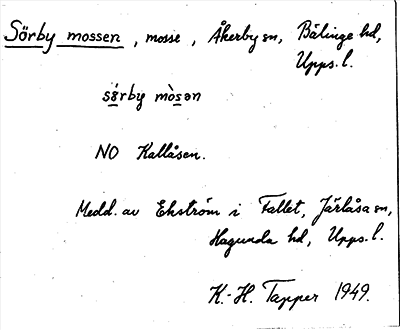 Sörby mossen, mosse, Åkerby sn, Bälinge hd,
Upps. l.
sö̀rby mòsən
NO Kallåsen.
Medd. av Ekström i Fallet, Järlåsa sn,
Hagunda hd, Upps. l.
K.-H. Tapper 1949.